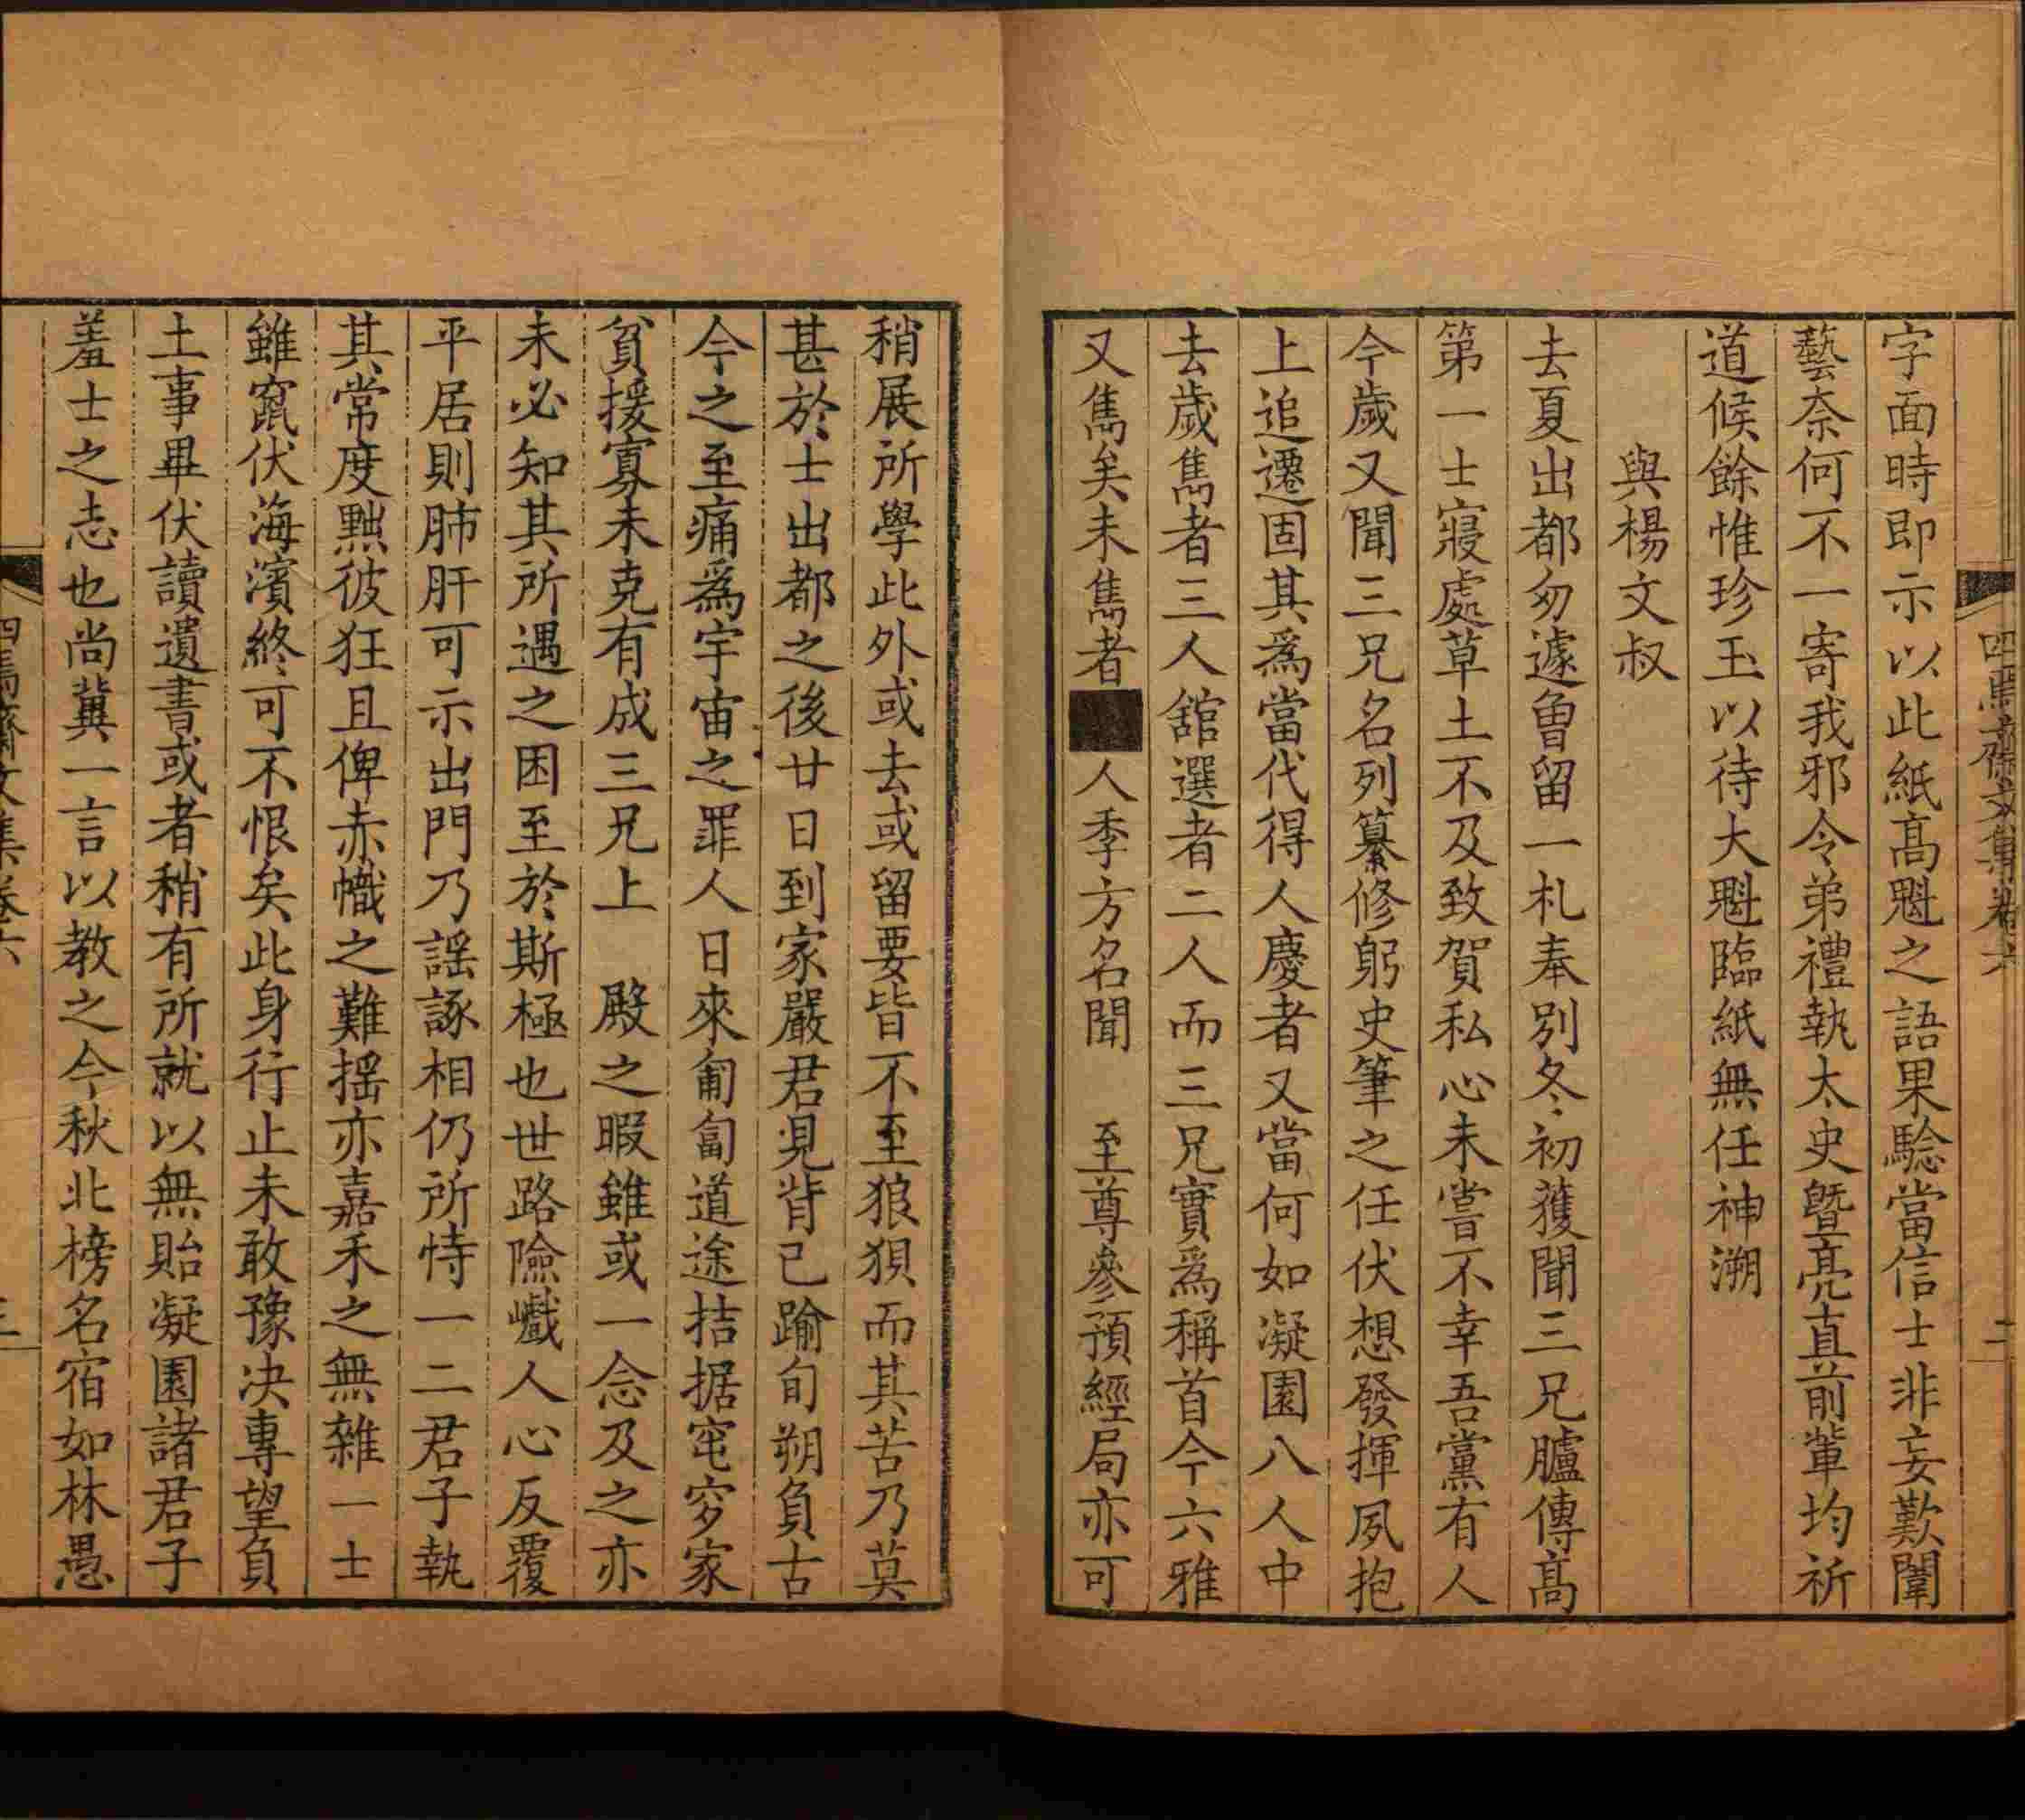 四焉齋文集卷六
二
字面時即示以此紙高魁之語果驗當信士非妄歎闈
藝奈何不一寄我邪令弟禮執太史暨亮直前輩均祈
道候餘惟珍玉以待大魁臨紙無任神溯
與楊文叔
去夏出都匆遽曾留一札奉別冬初獲聞三兄臚傳高
第一士寢處草土不及致賀私心未嘗不幸吾黨有人
今歲又聞三兄名列纂修躬史筆之任伏想發揮夙抱
上追遷固其爲當代得人慶者又當何如凝園八人中
去歲雋者三人舘選者二人而三兄實爲稱首今六雅
又雋矣未雋者人季方名聞　至尊參預經局亦可
稍展所學此外或去或留要皆不至狼狽而其苦乃莫
甚於士出都之後廿日到家嚴君見背已踰旬朔負古
今之至痛爲宇宙之罪人日來匍匐道途拮据窀穸家
貧援寡未克有成三兄上　殿之暇雖或一念及之亦
未必知其所遇之困至於斯極也世路險巇人心反覆
平居則肺肝可示出門乃謡諑相仍所恃一二君子執
其常度黙彼狂且俾赤幟之難揺亦嘉禾之無雜一士
雖竄伏海濱終可不恨矣此身行止未敢豫决專望負
土事畢伏讀遺書或者稍有所就以無貽凝園諸君子
羞士之志也尚冀一言以教之今秋北榜名宿如林愚
四焉齋文集卷六
三